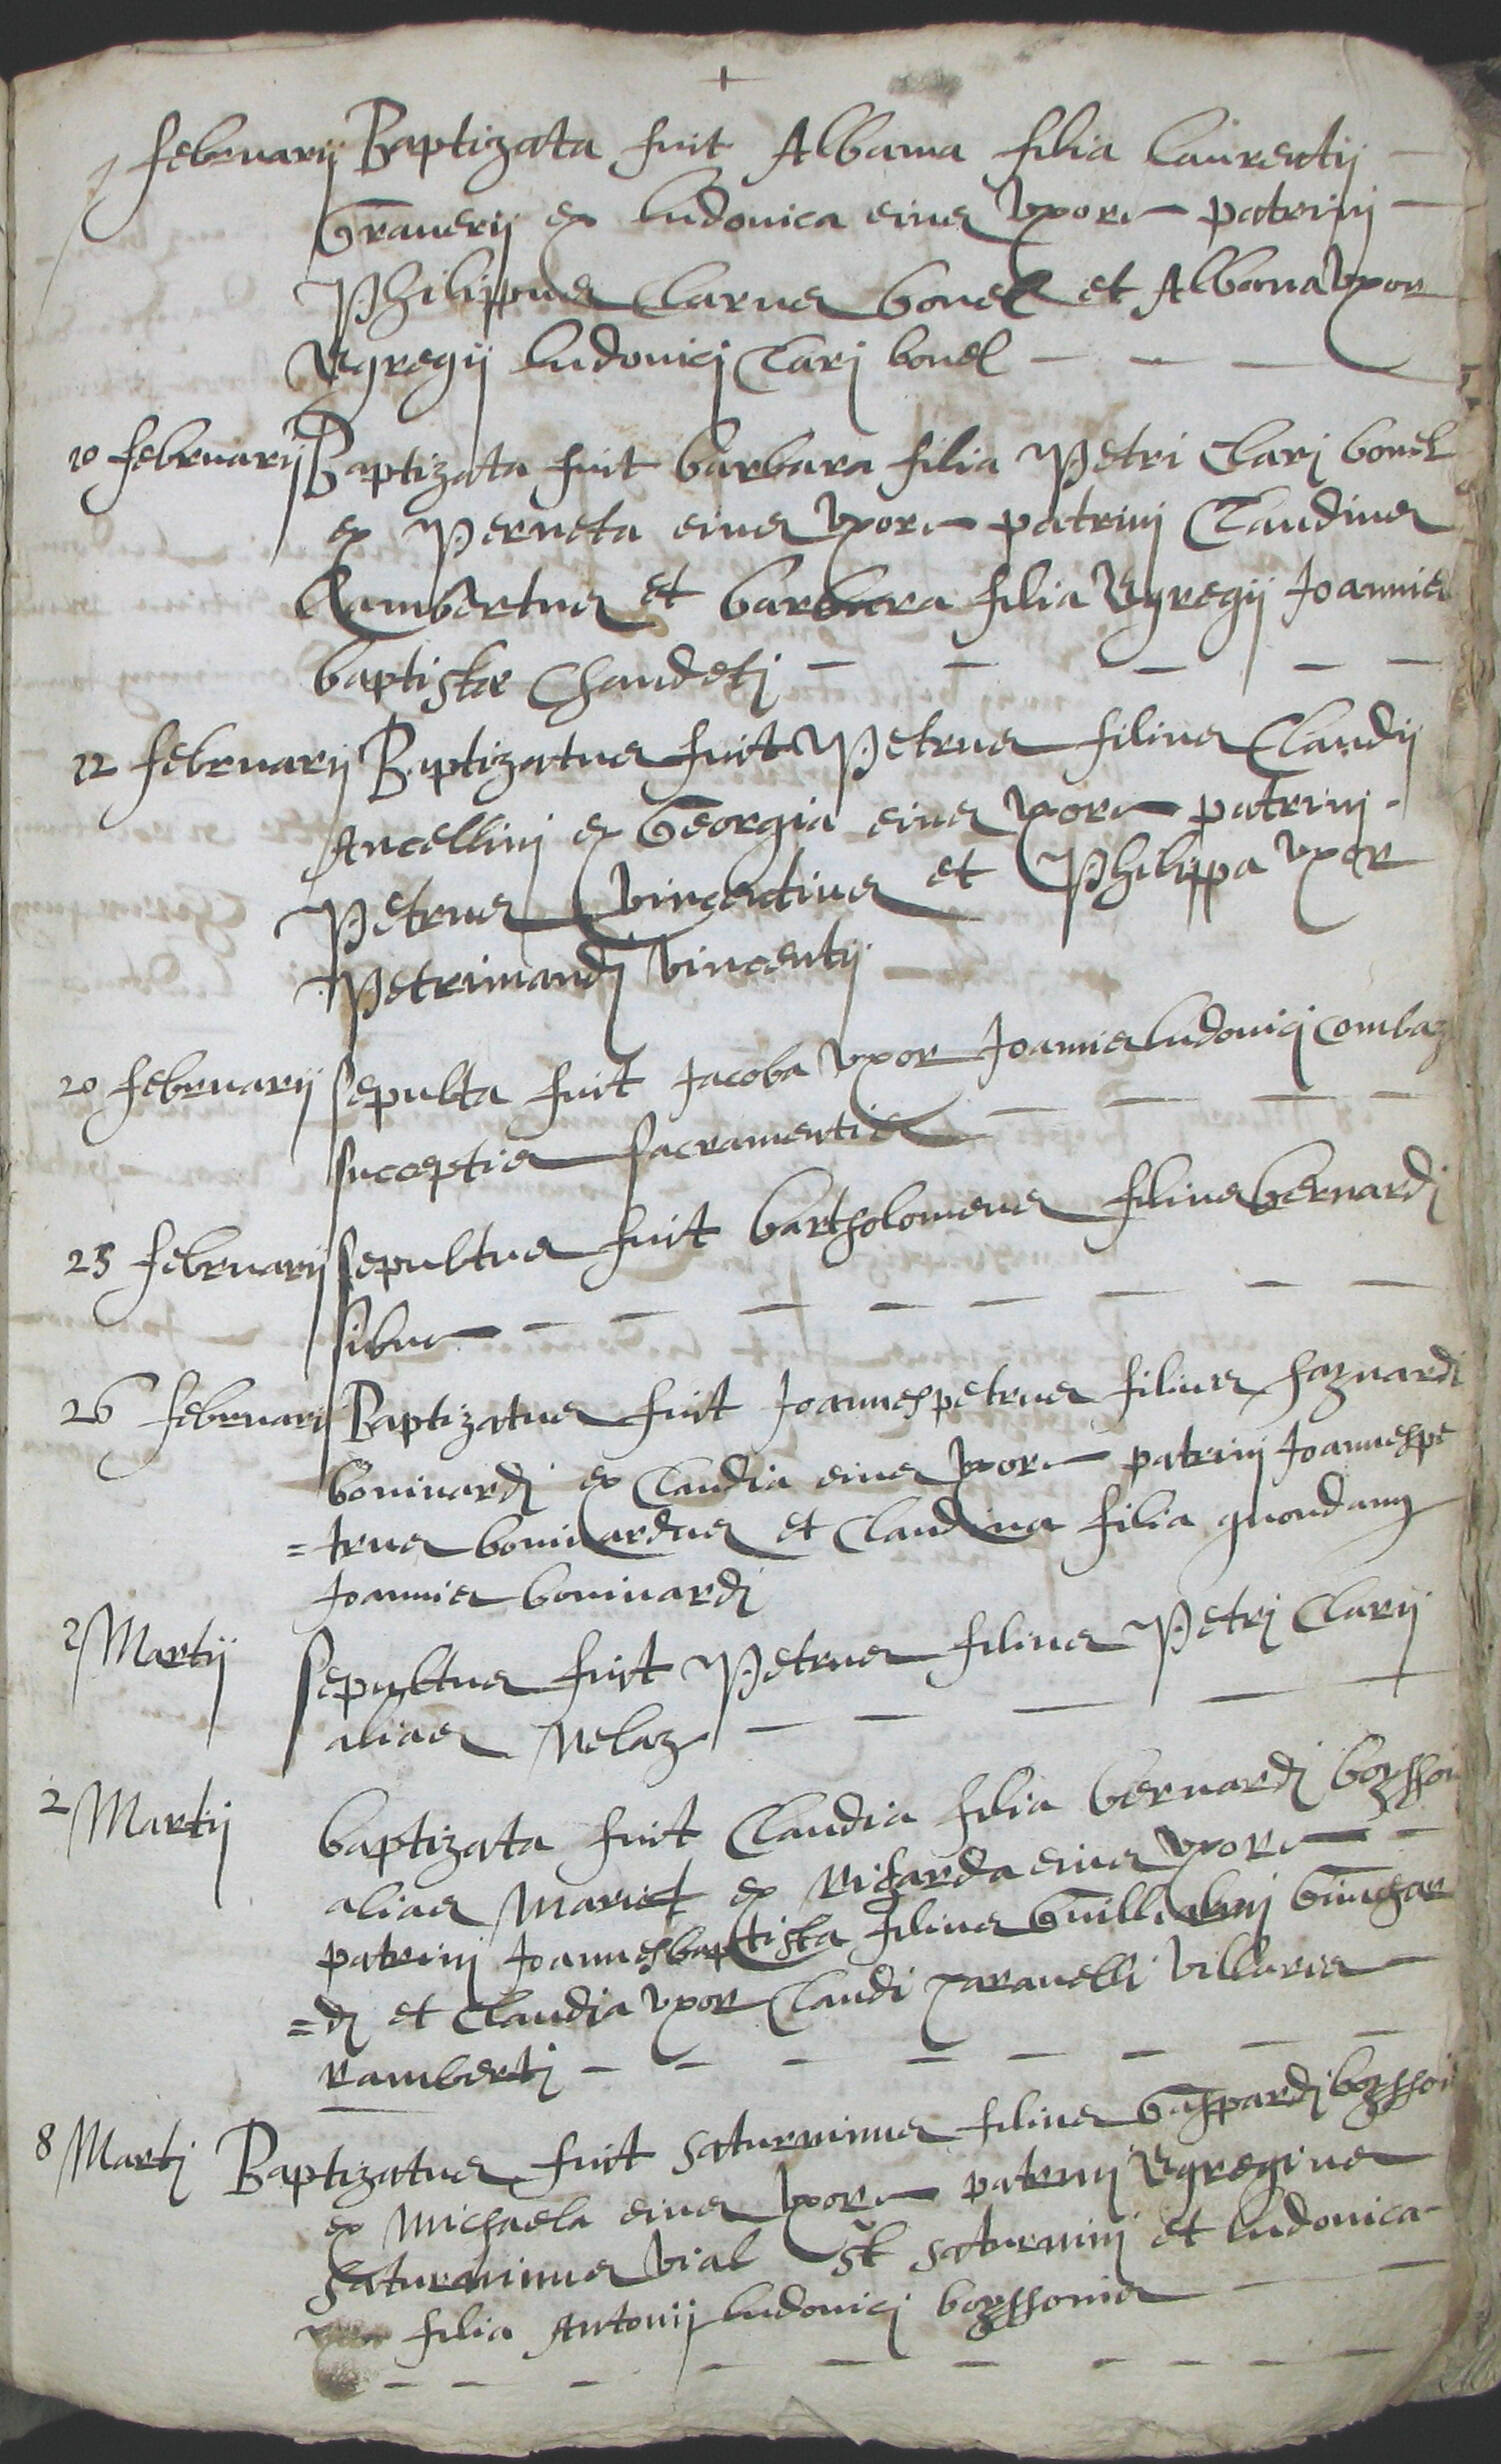 +
7 februarij Baptizata fuit Albana filia Laurentij
Graverij ex Ludovica eius uxore patrinj
Philippus Clarus bonel et Albona uxor
Egregij Ludovicj Clarj bonel
10 februarij Baptizata fuit barbara filia Petri Clarj bonel
ex Perneta eius uxore patrinj Claudius
Rambertus et barbara filia Egregij Joannis
baptistæ Chaudetj
12 februarij Baptizatus fuit Petrus filius Claudij
Ancellinj ex Georgia eius uxore patrinj
Petrus Vincentius et Philippa uxor
Petrimandj Vincentij
20 februarij sepulta fuit Jacoba uxor Joannis Ludovicj Combaz
susceptis sacramentis
23 februarij sepultus fuit bartholomeus filius bernardj
Sibue
26 februarij Baptizatus fuit Joannespetrus filius haynardi
bovinardj ex Claudia eius uxore patrinj Joannespe
=trus bovinardus et Claudina filia quondam
Joannis bovinardj
2 Martij Sepultus fuit Petrus filius Petrj Clarij
alias Velaz
2 Martij baptizata fuit Claudia filia bernardj boysson
alias Mariet ex Richarda eius uxore
patrinj Joannesbaptista filius Guillermj Guichar
=dj et Claudia uxor Claudi Varanelli Villaris
Rambertj
8 Martj Baptizatus fuit Saturninus filius Gaspardj boysson
ex Michaela eius uxore patrinj Egregius
Saturninus Vial St Saturninj et Ludovica
filia Antonij Ludovicj boyssonis